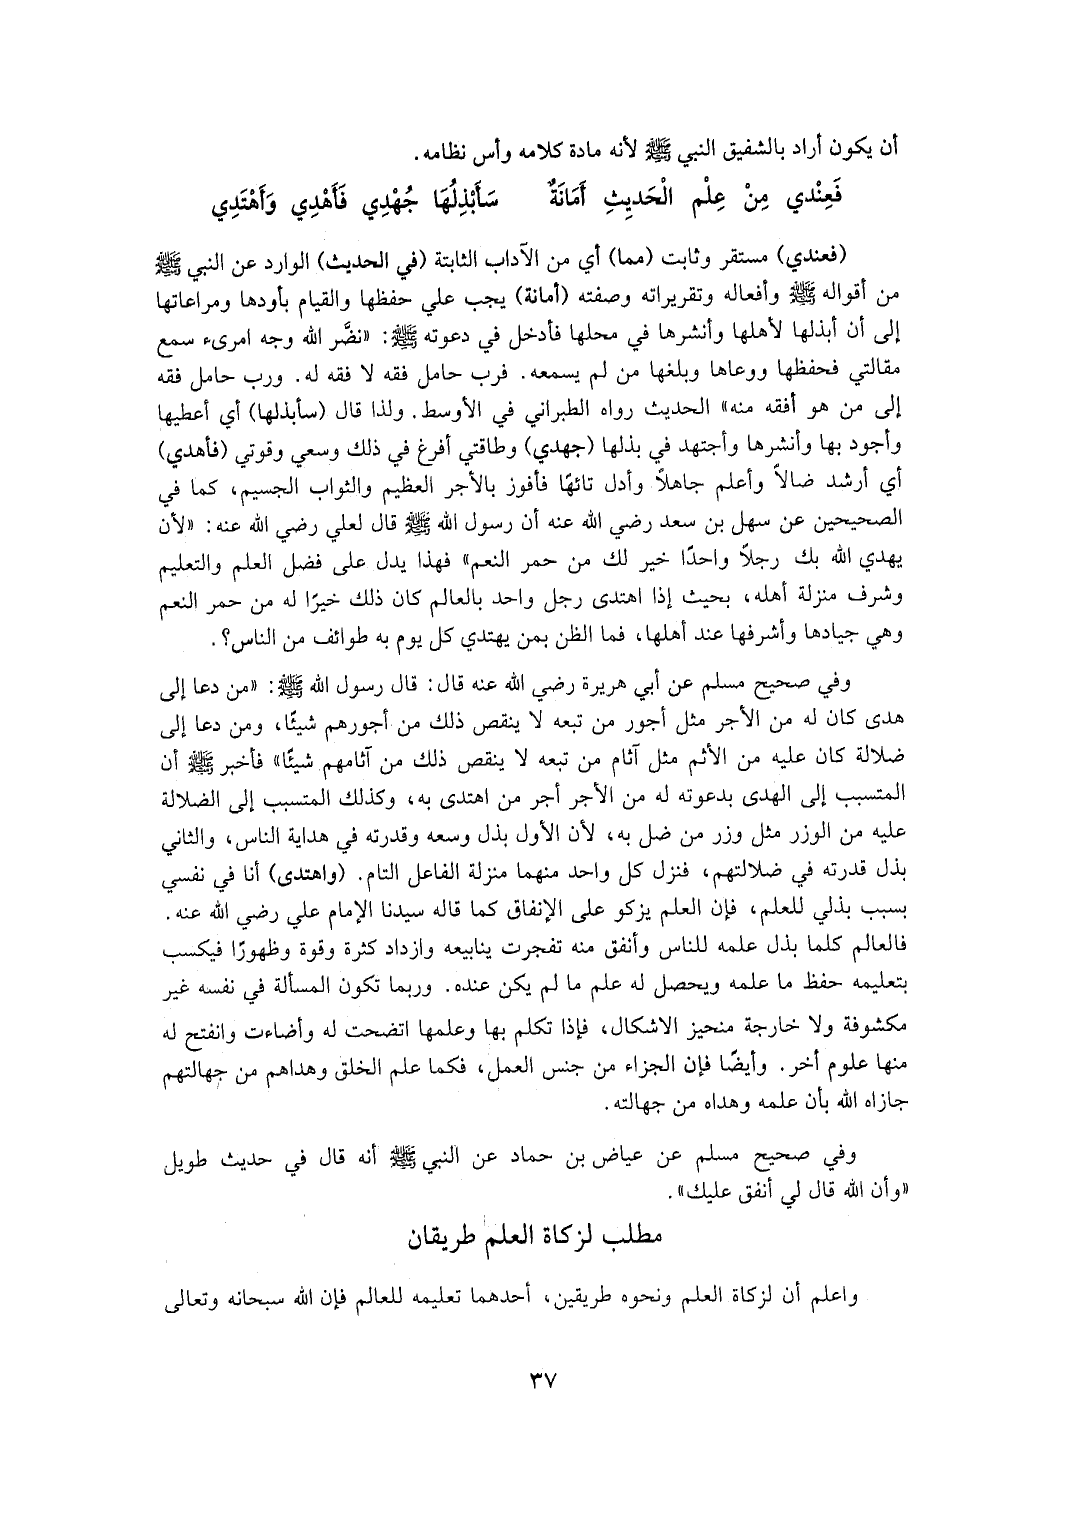 أن يكون أراد بالشفيق النبي ﷺ لأنه مادة كلامه وأس نظامه.
فَعِنْدي مِنْ عِلْم الْحَديثِ أَمَانَةٌ سَأَبْذِلُهَا جُهْدِي فَأَهْدِي وَأَهْتَدِي
(فعندي) مستقر وثابت (مما) أي من الآداب الثابتة (في الحديث) الوارد عن النبي ﷺ
من أقواله ﷺ وأفعاله وتقريراته وصفته (أمانة) يجب علي حفظها والقيام بأودها ومراعاتها
إلى أن أبذلها لأهلها وأنشرها في محلها فأدخل في دعوته ﷺ: «نضَّر الله وجه امرىء سمع
مقالتي فحفظها ووعاها وبلغها من لم يسمعه. فرب حامل فقه لا فقه له. ورب حامل فقه
إلى من هو أفقه منه» الحديث رواه الطبراني في الأوسط. ولذا قال (سأبذلها) أي أعطيها
وأجود بها وأنشرها وأجتهد في بذلها (جهدي) وطاقتي أفرغ في ذلك وسعي وقوتي (فأهدي)
أي أرشد ضالاً وأعلم جاهلاً وأدل تائهًا فأفوز بالأجر العظيم والثواب الجسيم، كما في
الصحيحين عن سهل بن سعد رضي الله عنه أن رسول الله ﷺ قال لعلي رضي الله عنه: «لأن
يهدي الله بك رجلاً واحدًا خير لك من حمر النعم» فهذا يدل على فضل العلم والتعليم
وشرف منزلة أهله، بحيث إذا اهتدى رجل واحد بالعالم كان ذلك خيرًا له من حمر النعم
وهي جيادها وأشرفها عند أهلها، فما الظن بمن يهتدي كل يوم به طوائف من الناس؟.
وفي صحيح مسلم عن أبي هريرة رضي الله عنه قال: قال رسول الله ﷺ: «من دعا إلى
هدى كان له من الأجر مثل أجور من تبعه لا ينقص ذلك من أجورهم شيئًا، ومن دعا إلى
ضلالة كان عليه من الأثم مثل آثام من تبعه لا ينقص ذلك من آثامهم شيئًا» فأخبر ﷺ أن
المتسبب إلى الهدى بدعوته له من الأجر أجر من اهتدى به، وكذلك المتسبب إلى الضلالة
عليه من الوزر مثل وزر من ضل به، لأن الأول بذل وسعه وقدرته في هداية الناس، والثاني
بذل قدرته في ضلالتهم، فنزل كل واحد منهما منزلة الفاعل التام. (واهتدى) أنا في نفسي
بسبب بذلي للعلم، فإن العلم يزكو على الإنفاق كما قاله سيدنا الإمام علي رضي الله عنه.
فالعالم كلما بذل علمه للناس وأنفق منه تفجرت ينابيعه وازداد كثرة وقوة وظهورًا فيكسب
بتعليمه حفظ ما علمه ويحصل له علم ما لم يكن عنده. وربما تكون المسألة في نفسه غير
مكشوفة ولا خارجة منحيز الاشكال، فإذا تكلم بها وعلمها اتضحت له وأضاءت وانفتح له
منها علوم أخر. وأيضًا فإن الجزاء من جنس العمل، فكما علم الخلق وهداهم من جهالتهم
جازاه الله بأن علمه وهداه من جهالته.
وفي صحيح مسلم عن عياض بن حماد عن النبي ﷺ أنه قال في حديث طويل
«وأن الله قال لي أنفق عليك».
مطلب لزكاة العلم طريقان
واعلم أن لزكاة العلم ونحوه طريقين، أحدهما تعليمه للعالم فإن الله سبحانه وتعالى
٣٧